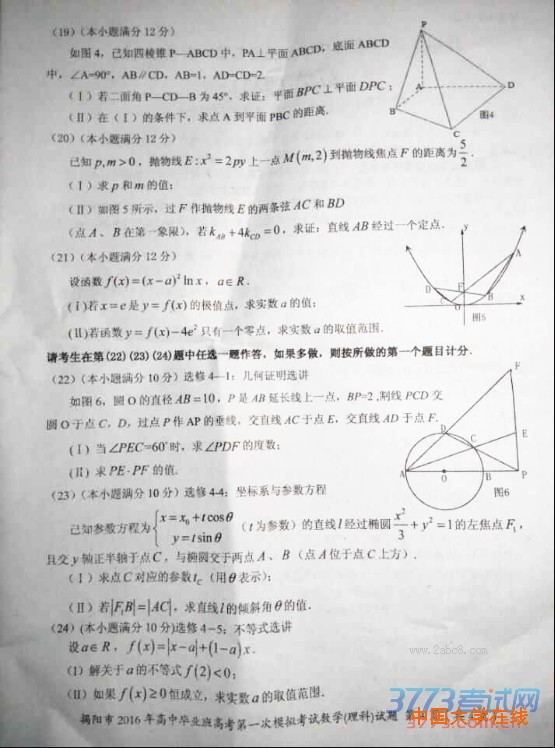 (19)(本小题满分12分)
如图4,已知四棱锥P—ABCD中,PA⊥平面ABCD,底面ABCD
中,∠A=90°,AB∥CD,AB=1,AD=CD=2.
(Ⅰ)若二面角P—CD—B为45°,求证:平面BPC⊥平面DPC;
(Ⅱ)在(Ⅰ)的条件下,求点A到平面PBC的距离.
P
A
D
B
C
图4
(20)(本小题满分12分)
已知p,m>0,抛物线E:x²=2py上一点M(m,2)到抛物线焦点F的距离为5/2.
(Ⅰ)求p和m的值;
(Ⅱ)如图5所示,过F作抛物线E的两条弦AC和BD
(点A、B在第一象限),若k_AB+4k_CD=0,求证:直线AB经过一个定点.
y
A
D
F
B
C
O
x
图5
(21)(本小题满分12分)
设函数f(x)=(x-a)²ln x,a∈R.
(Ⅰ)若x=e是y=f(x)的极值点,求实数a的值;
(Ⅱ)若函数y=f(x)-4e²只有一个零点,求实数a的取值范围.
请考生在第(22)(23)(24)题中任选一题作答,如果多做,则按所做的第一个题目计分.
(22)(本小题满分10分)选修4—1:几何证明选讲
如图6,圆O的直径AB=10,P是AB延长线上一点,BP=2,割线PCD交
圆O于点C,D,过点P作AP的垂线,交直线AC于点E,交直线AD于点F.
(Ⅰ)当∠PEC=60°时,求∠PDF的度数;
(Ⅱ)求PE·PF的值.
F
D
C
E
A
O
B
P
图6
(23)(本小题满分10分)选修4-4:坐标系与参数方程
已知参数方程为{x=x₀+tcosθ
y=tsinθ
(t为参数)的直线l经过椭圆x²/3+y²=1的左焦点F₁,
且交y轴正半轴于点C,与椭圆交于两点A、B(点A位于点C上方).
(Ⅰ)求点C对应的参数t_C(用θ表示);
(Ⅱ)若|F₁B|=|AC|,求直线l的倾斜角θ的值.
(24)(本小题满分10分)选修4-5:不等式选讲
设a∈R,f(x)=|x-a|+(1-a)x.
(Ⅰ)解关于a的不等式f(2)<0;
(Ⅱ)如果f(x)≥0恒成立,求实数a的取值范围.
www.2abc8.com
揭阳市2016年高中毕业班高考第一次模拟考试数学(理科)试题
3773考试网
中国大学在线